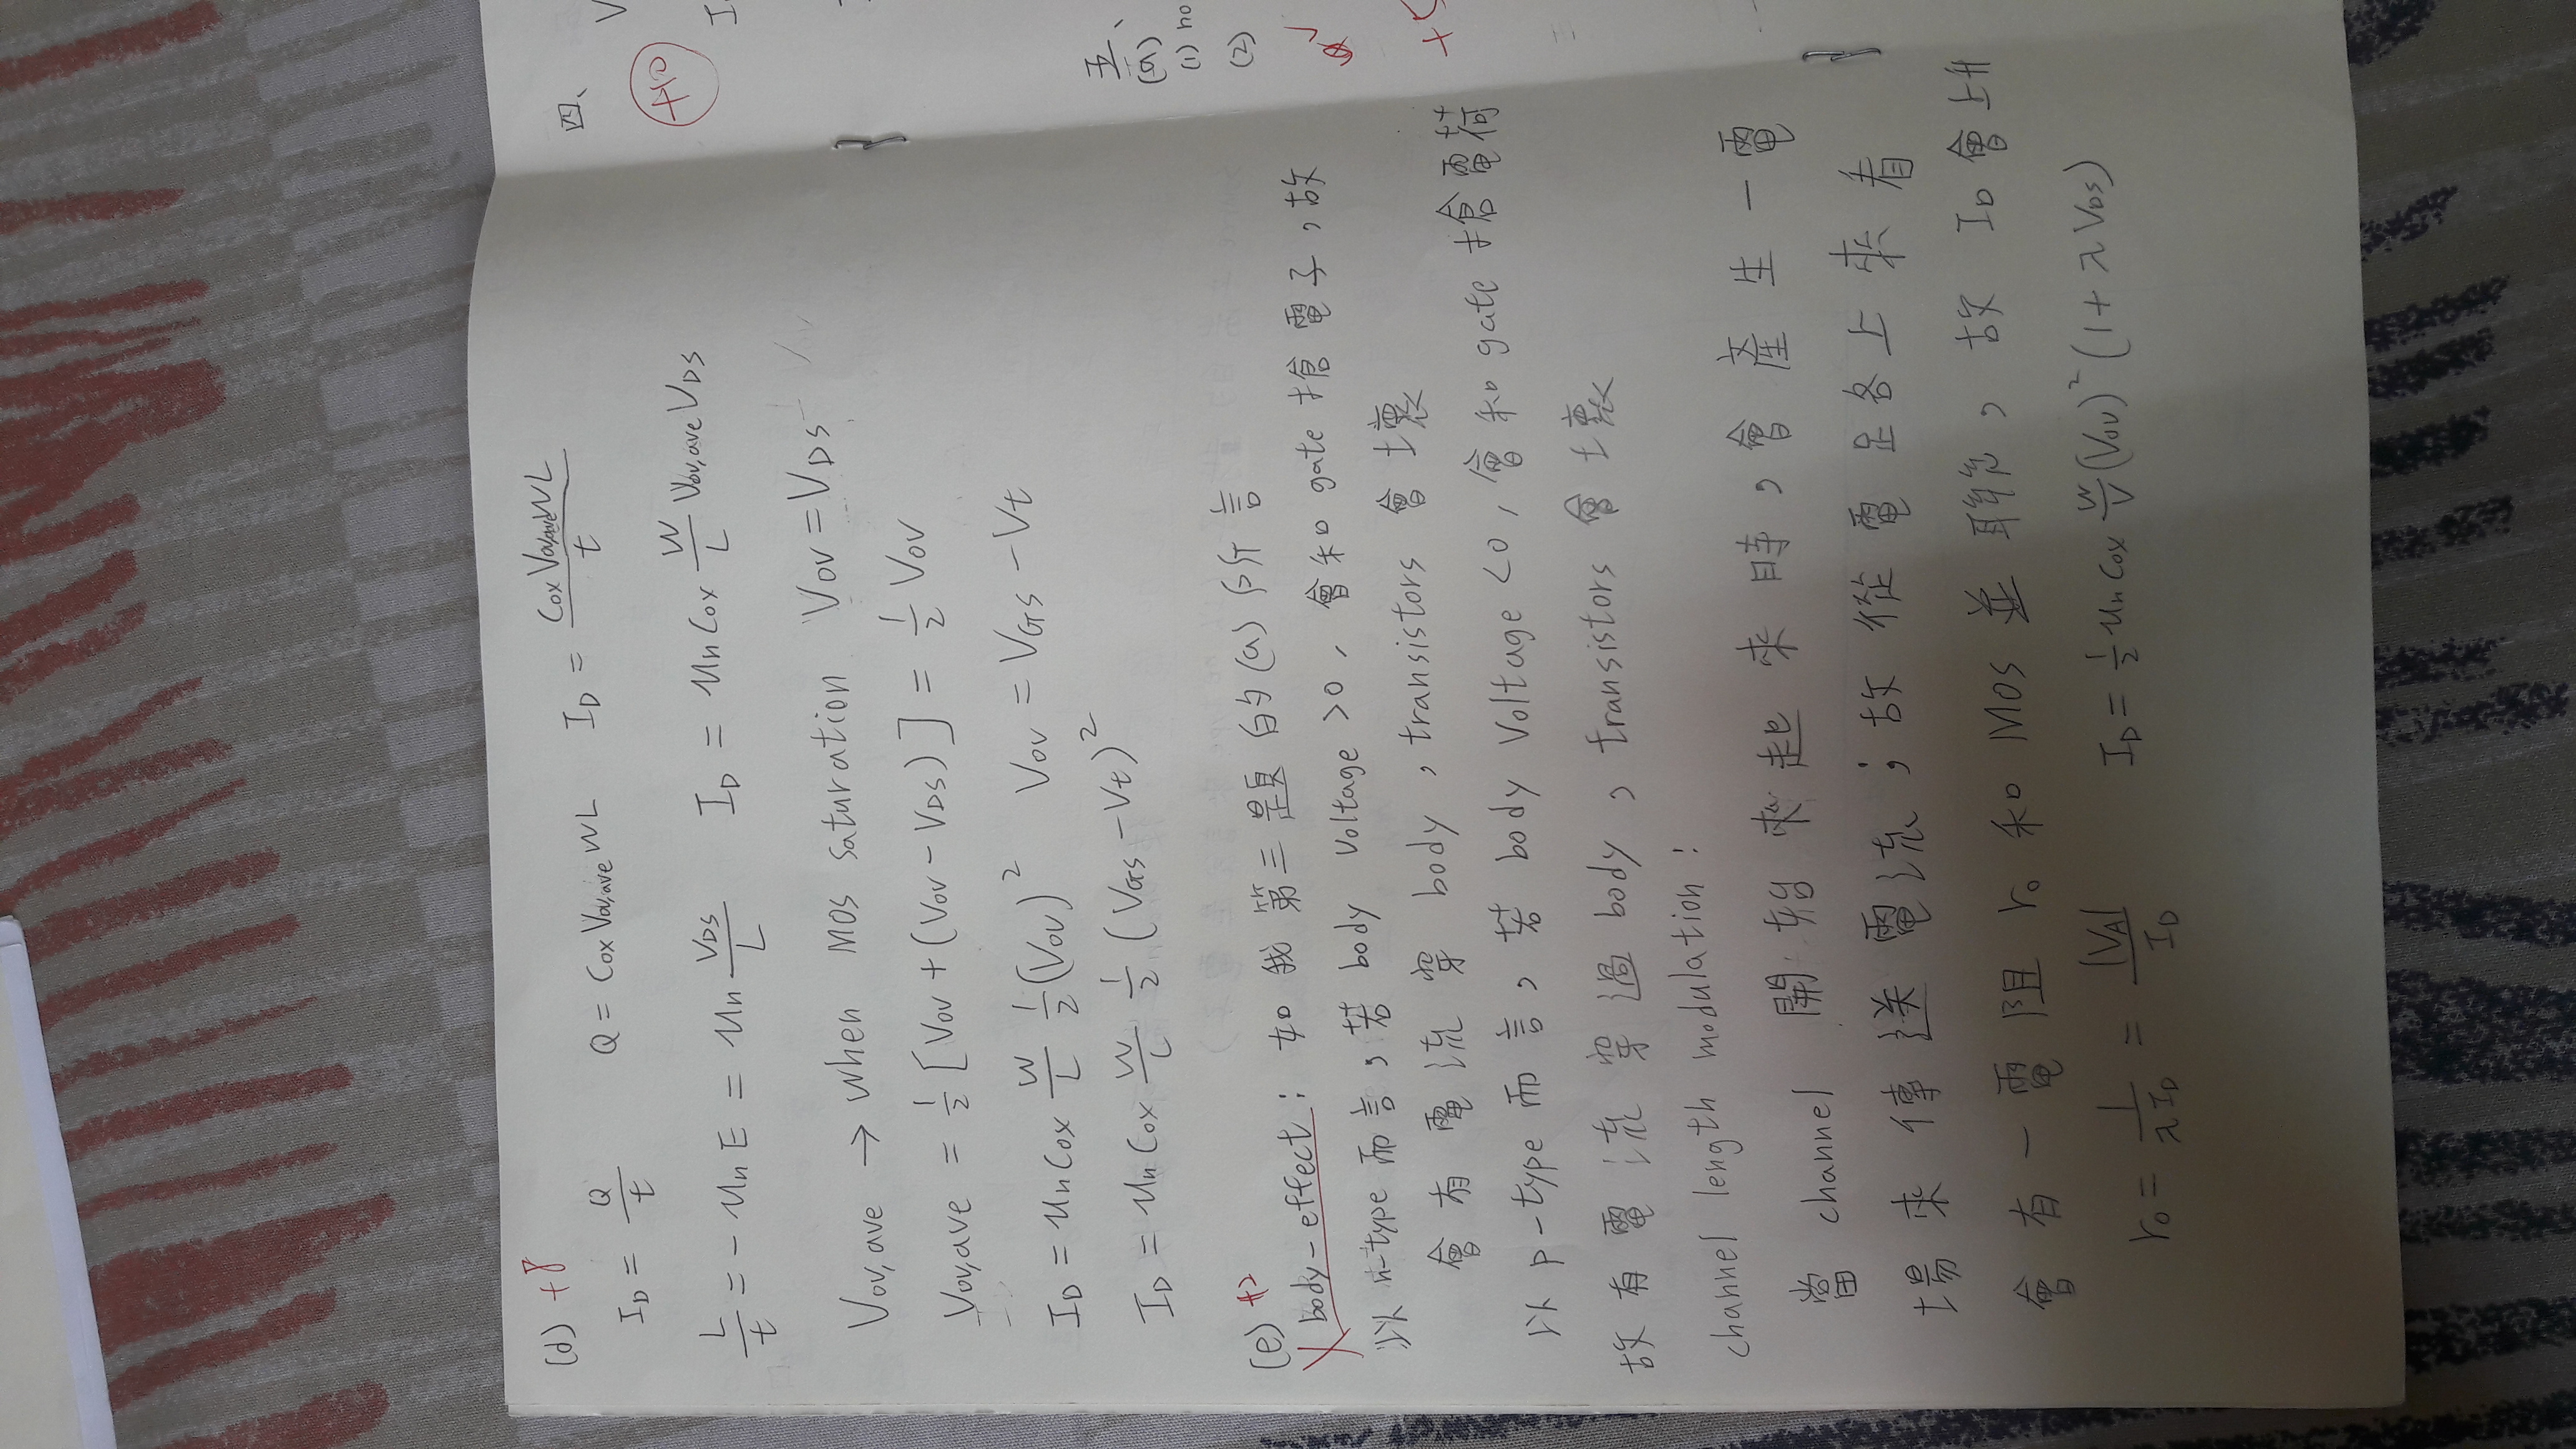 (d) +8
I_D = Q/t Q = Cox Vov,ave WL I_D = Cox Vov,ave WL / t
L/t = - μn E = μn V_DS/L I_D = μn Cox W/L Vov,ave V_DS
Vov,ave → when MOS saturation Vov = V_DS
Vov,ave = 1/2 [Vov + (Vov - V_DS)] = 1/2 Vov
I_D = μn Cox W/L 1/2 (Vov)² Vov = V_GS - Vt
I_D = μn Cox W/L 1/2 (V_GS - Vt)²
(e) +2
X body-effect : 如我第三題的(a)所言
以 n-type 而言,若 body Voltage >0, 會和 gate 搶電子,故
會有電流穿 body , transistors 會壞
以 p-type 而言,若 body Voltage <0, 會和 gate 搶電荷
故有電流穿過 body , transistors 會壞
channel length modulation :
當 channel 開始夾起來時,會產生一電
場來傳送電流;故從電路上來看
會有一電阻 ro 和 MOS 並聯,故 I_D 會上升
ro = 1/λI_D = |V_A|/I_D I_D = 1/2 μn Cox W/V (Vov)² (1 + λ V_DS)
四、
+10
五、
(a)
(1) no
(2)
+5